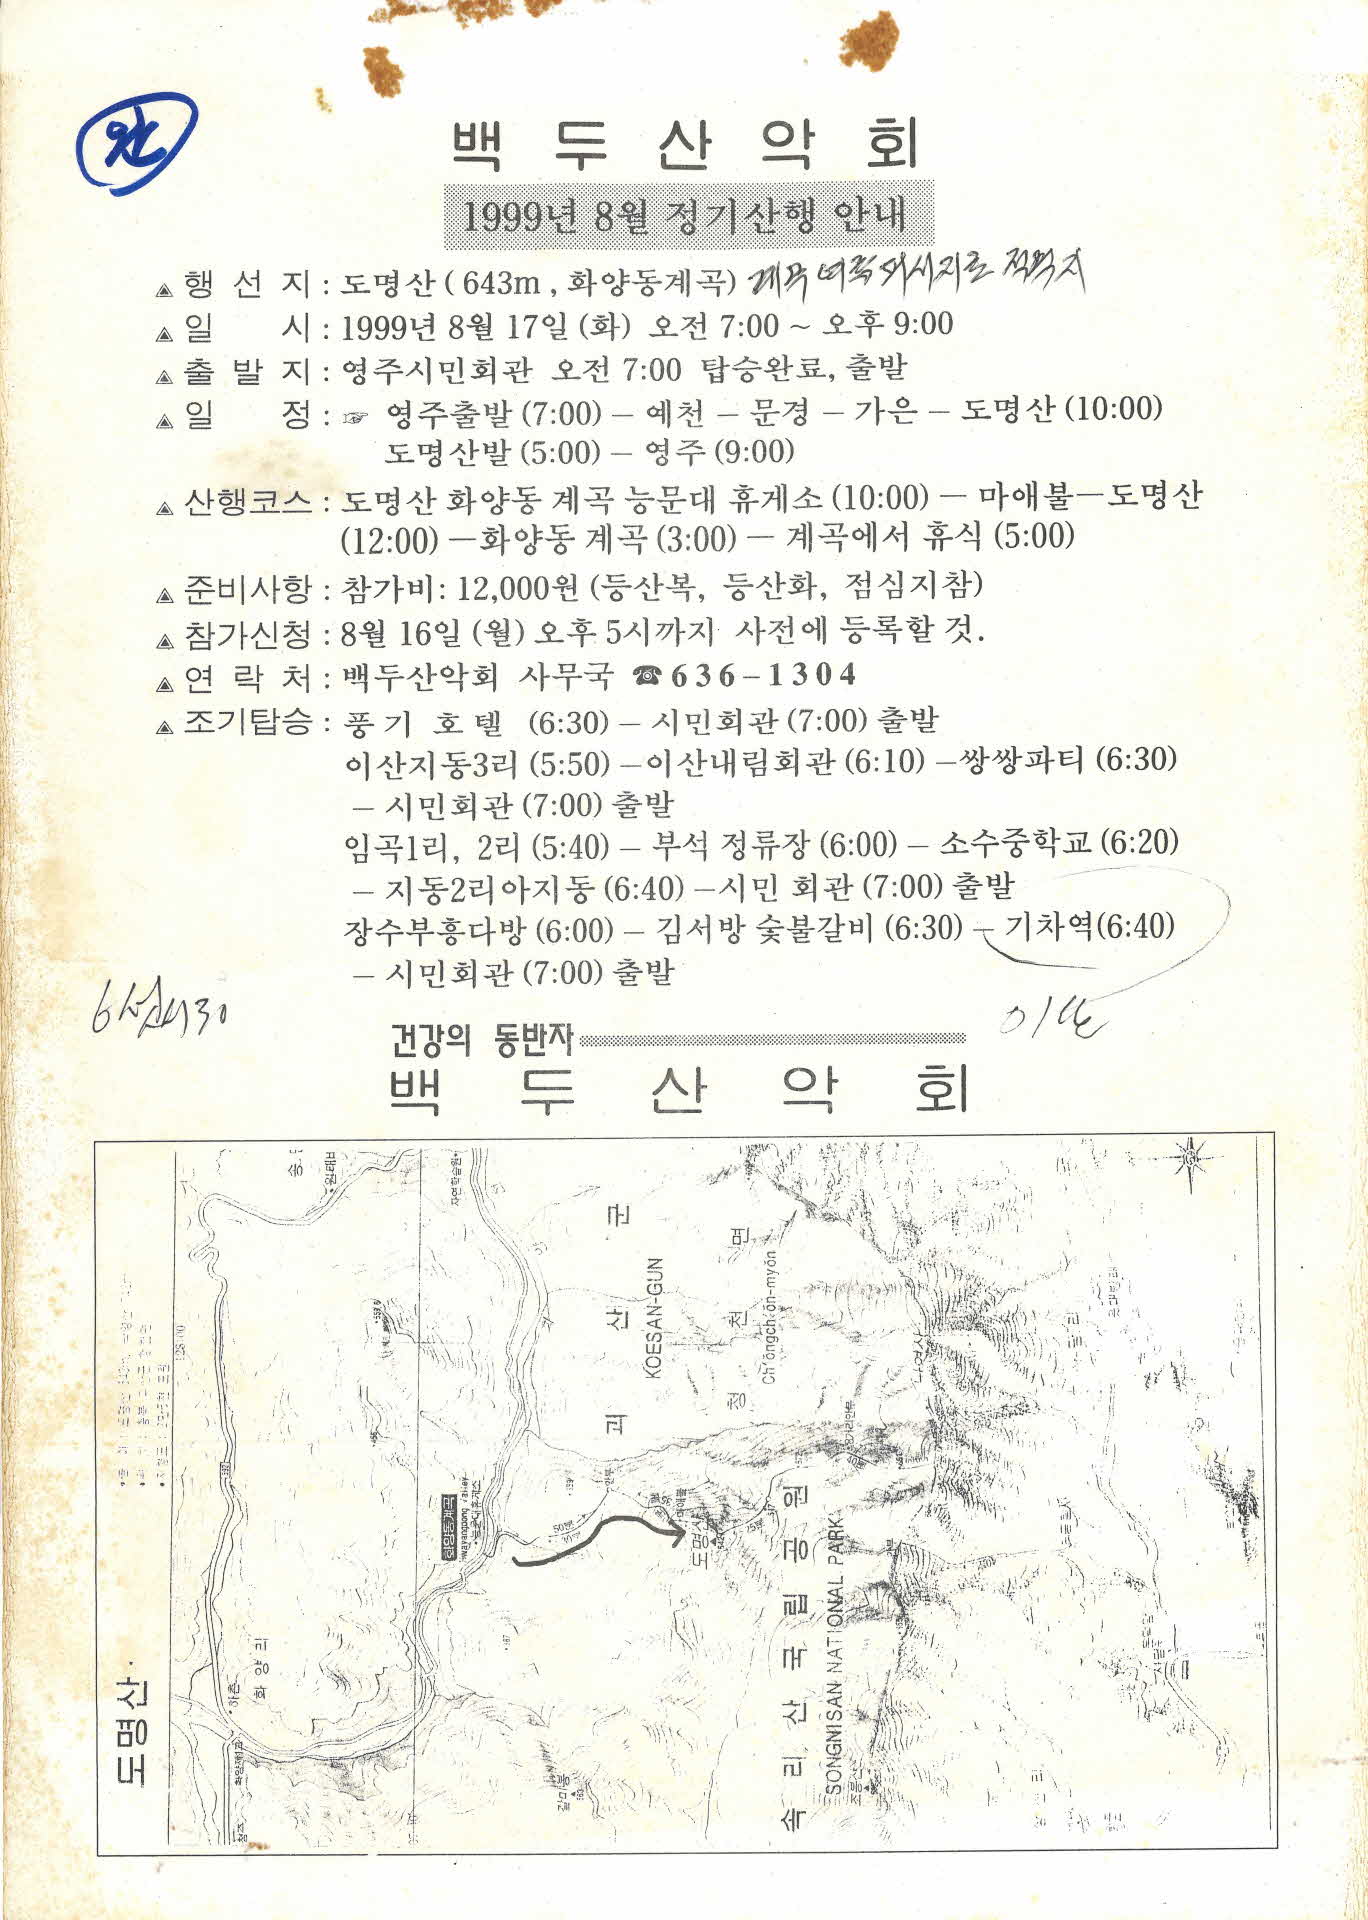 완
백 두 산 악 회
1999년 8월 정기산행 안내
▲ 행 선 지 : 도명산 ( 643m , 화양동계곡)
▲ 일 시 : 1999년 8월 17일 (화) 오전 7:00 ~ 오후 9:00
▲ 출 발 지 : 영주시민회관 오전 7:00 탑승완료, 출발
▲ 일 정 : ☞ 영주출발 (7:00) – 예천 – 문경 – 가은 – 도명산 (10:00)
도명산발 (5:00) – 영주 (9:00)
▲ 산행코스 : 도명산 화양동 계곡 능문대 휴게소 (10:00) – 마애불–도명산
(12:00) –화양동 계곡 (3:00) – 계곡에서 휴식 (5:00)
▲ 준비사항 : 참가비: 12,000원 (등산복, 등산화, 점심지참)
▲ 참가신청 : 8월 16일 (월) 오후 5시까지 사전에 등록할 것.
▲ 연 락 처 : 백두산악회 사무국 ☎ 636-1304
▲ 조기탑승 : 풍기 호텔 (6:30) – 시민회관 (7:00) 출발
이산지동3리 (5:50) –이산내림회관 (6:10) –쌍쌍파티 (6:30)
– 시민회관 (7:00) 출발
임곡1리, 2리 (5:40) – 부석 정류장 (6:00) – 소수중학교 (6:20)
– 지동2리아지동 (6:40) –시민 회관 (7:00) 출발
장수부흥다방 (6:00) – 김서방 숯불갈비 (6:30) – 기차역(6:40)
– 시민회관 (7:00) 출발
건강의 동반자
백 두 산 악 회
도명산
괴 산 군
KOESAN-GUN
청 천 면
Ch'ŏngch'ŏn-myŏn
자연학습원
화양동계곡
마애불
도명산
속 리 산 국 립 공 원
SONGNISAN NATIONAL PARK
화 양 리
하촌
갈미봉
조봉산
낙영산